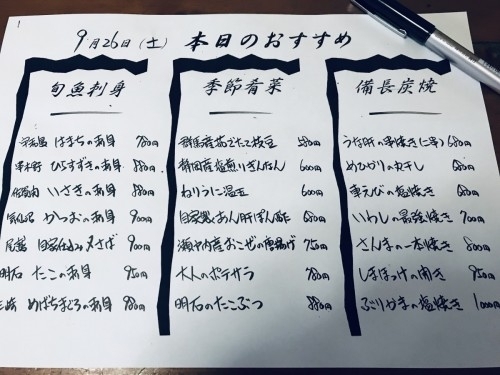 9月26日(土) 本日のおすすめ
旬魚刺身
はまちのお刺身 780円
ひらすずきのお刺身 880円
いさきのお刺身 880円
気仙沼 かつおのお刺身 900円
自家仕込み〆さば 900円
明石 たこのお刺身 950円
めばちまぐろのお刺身 980円
季節肴菜
群馬産茹でたて枝豆 580円
静岡産塩煎りぎんなん 600円
ねりうに温玉 600円
自家製あん肝ぽん酢 680円
瀬戸内産おこぜの唐揚げ 750円
大人のポテサラ 780円
明石のたこぶつ 880円
備長炭焼
うなぎ肝の串焼き 680円
めひかりの丸干し 680円
車えびの塩焼き 680円
いわしの最強焼き 700円
さんまの一本焼き 800円
しまほっけの開き 950円
ぶりかまの塩焼き 1000円